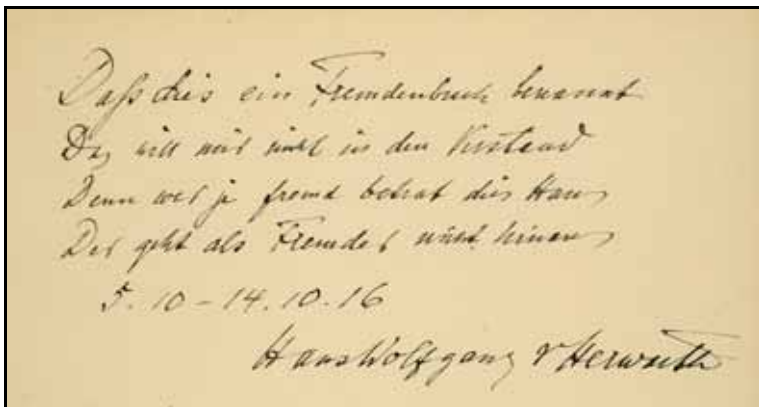 Daß dies ein Fremdenbuch benannt
Das will mir nicht in den Verstand
Denn wer je fremd betrat dies Haus
Der geht als Fremder nicht hinaus
5.10-14.10.16
Hans Wolfgang v Herwarth